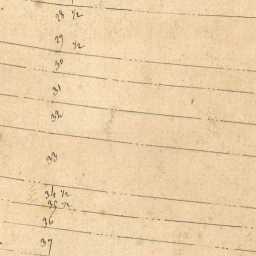 28 ½
29 ½
30
31
32
33
34 ½
35 ½
36
37